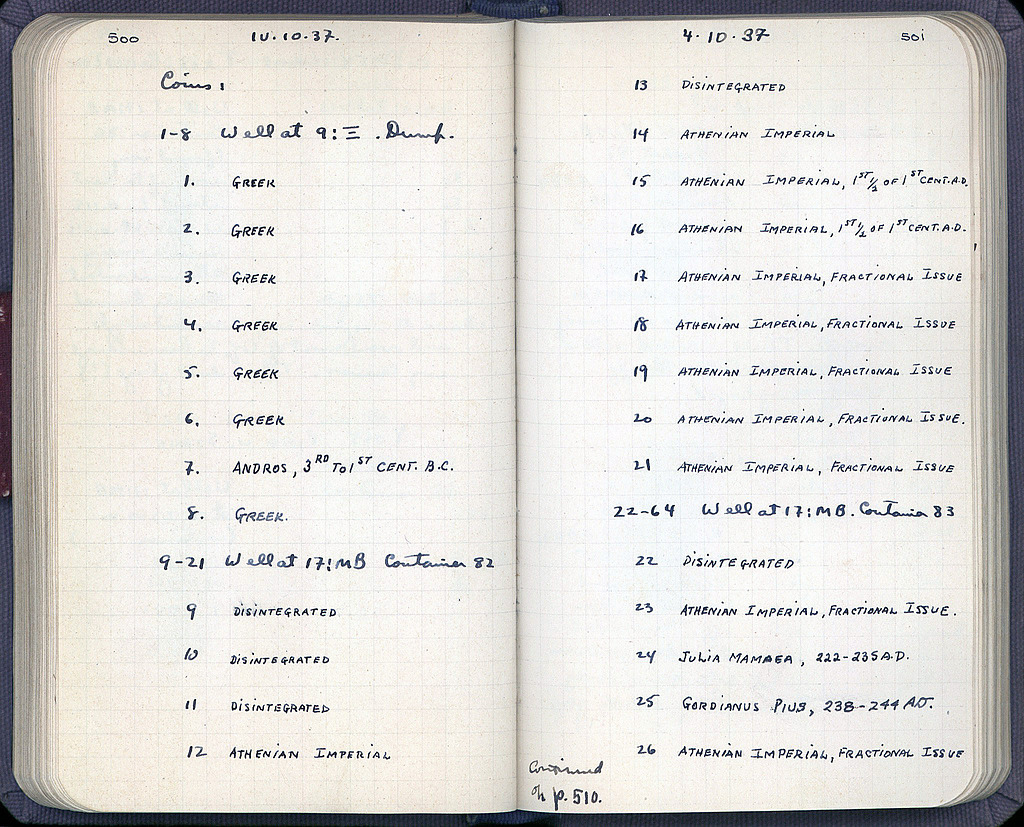 500
10.10.37.
Coins:
1-8 Well at 9:Ξ. Dump.
1. GREEK
2. GREEK
3. GREEK
4. GREEK
5. GREEK
6. GREEK
7. ANDROS, 3RD TO 1ST CENT. B.C.
8. GREEK.
9-21 Well at 17:MB Container 82
9 DISINTEGRATED
10 DISINTEGRATED
11 DISINTEGRATED
12 ATHENIAN IMPERIAL
4.10.37
501
13 DISINTEGRATED
14 ATHENIAN IMPERIAL
15 ATHENIAN IMPERIAL, 1ST 1/2 OF 1ST CENT. A.D.
16 ATHENIAN IMPERIAL, 1ST 1/2 OF 1ST CENT. A.D.
17 ATHENIAN IMPERIAL, FRACTIONAL ISSUE
18 ATHENIAN IMPERIAL, FRACTIONAL ISSUE
19 ATHENIAN IMPERIAL, FRACTIONAL ISSUE
20 ATHENIAN IMPERIAL, FRACTIONAL ISSUE.
21 ATHENIAN IMPERIAL, FRACTIONAL ISSUE
22-64 Well at 17:MB. Container 83
22 DISINTEGRATED
23 ATHENIAN IMPERIAL, FRACTIONAL ISSUE.
24 JULIA MAMAEA, 222-235 A.D.
25 GORDIANUS PIUS, 238-244 A.D.
26 ATHENIAN IMPERIAL, FRACTIONAL ISSUE
Continued
on p. 510.